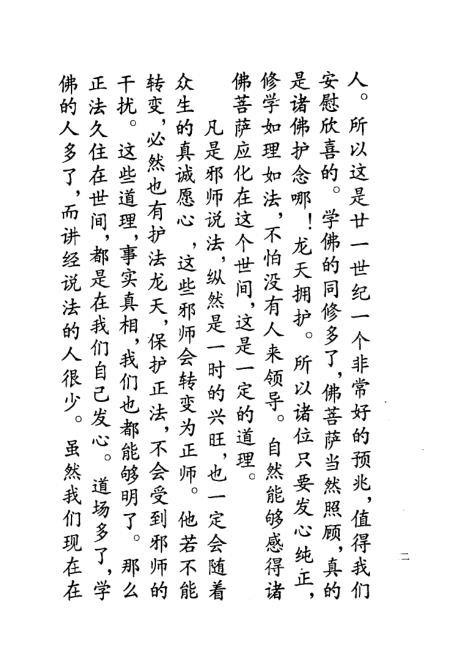 人。所以这是廿一世纪一个非常好的预兆，值得我们
安慰欣喜的。学佛的同修多了，佛菩萨当然照顾，真的
是诸佛护念哪！龙天拥护。所以诸位只要发心纯正，
修学如理如法，不怕没有人来领导。自然能够感得诸
佛菩萨应化在这个世间，这是一定的道理。
凡是邪师说法，纵然是一时的兴旺，也一定会随着
众生的真诚愿心，这些邪师会转变为正师。他若不能
转变，必然也有护法龙天，保护正法，不会受到邪师的
干扰。这些道理，事实真相，我们也都能够明了。那么
正法久住在世间，都是在我们自己发心。道场多了，学
佛的人多了，而讲经说法的人很少。虽然我们现在在
二